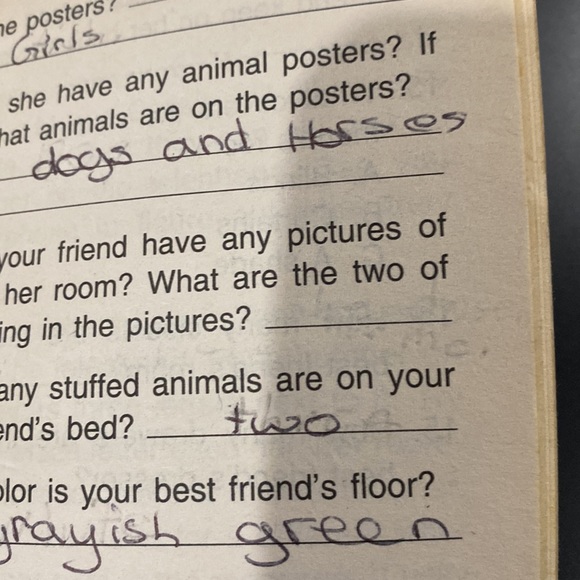 ne posters?
Girls
she have any animal posters? If
hat animals are on the posters?
dogs and Horses
your friend have any pictures of
her room? What are the two of
ing in the pictures?
any stuffed animals are on your
end's bed? two
olor is your best friend's floor?
grayish green